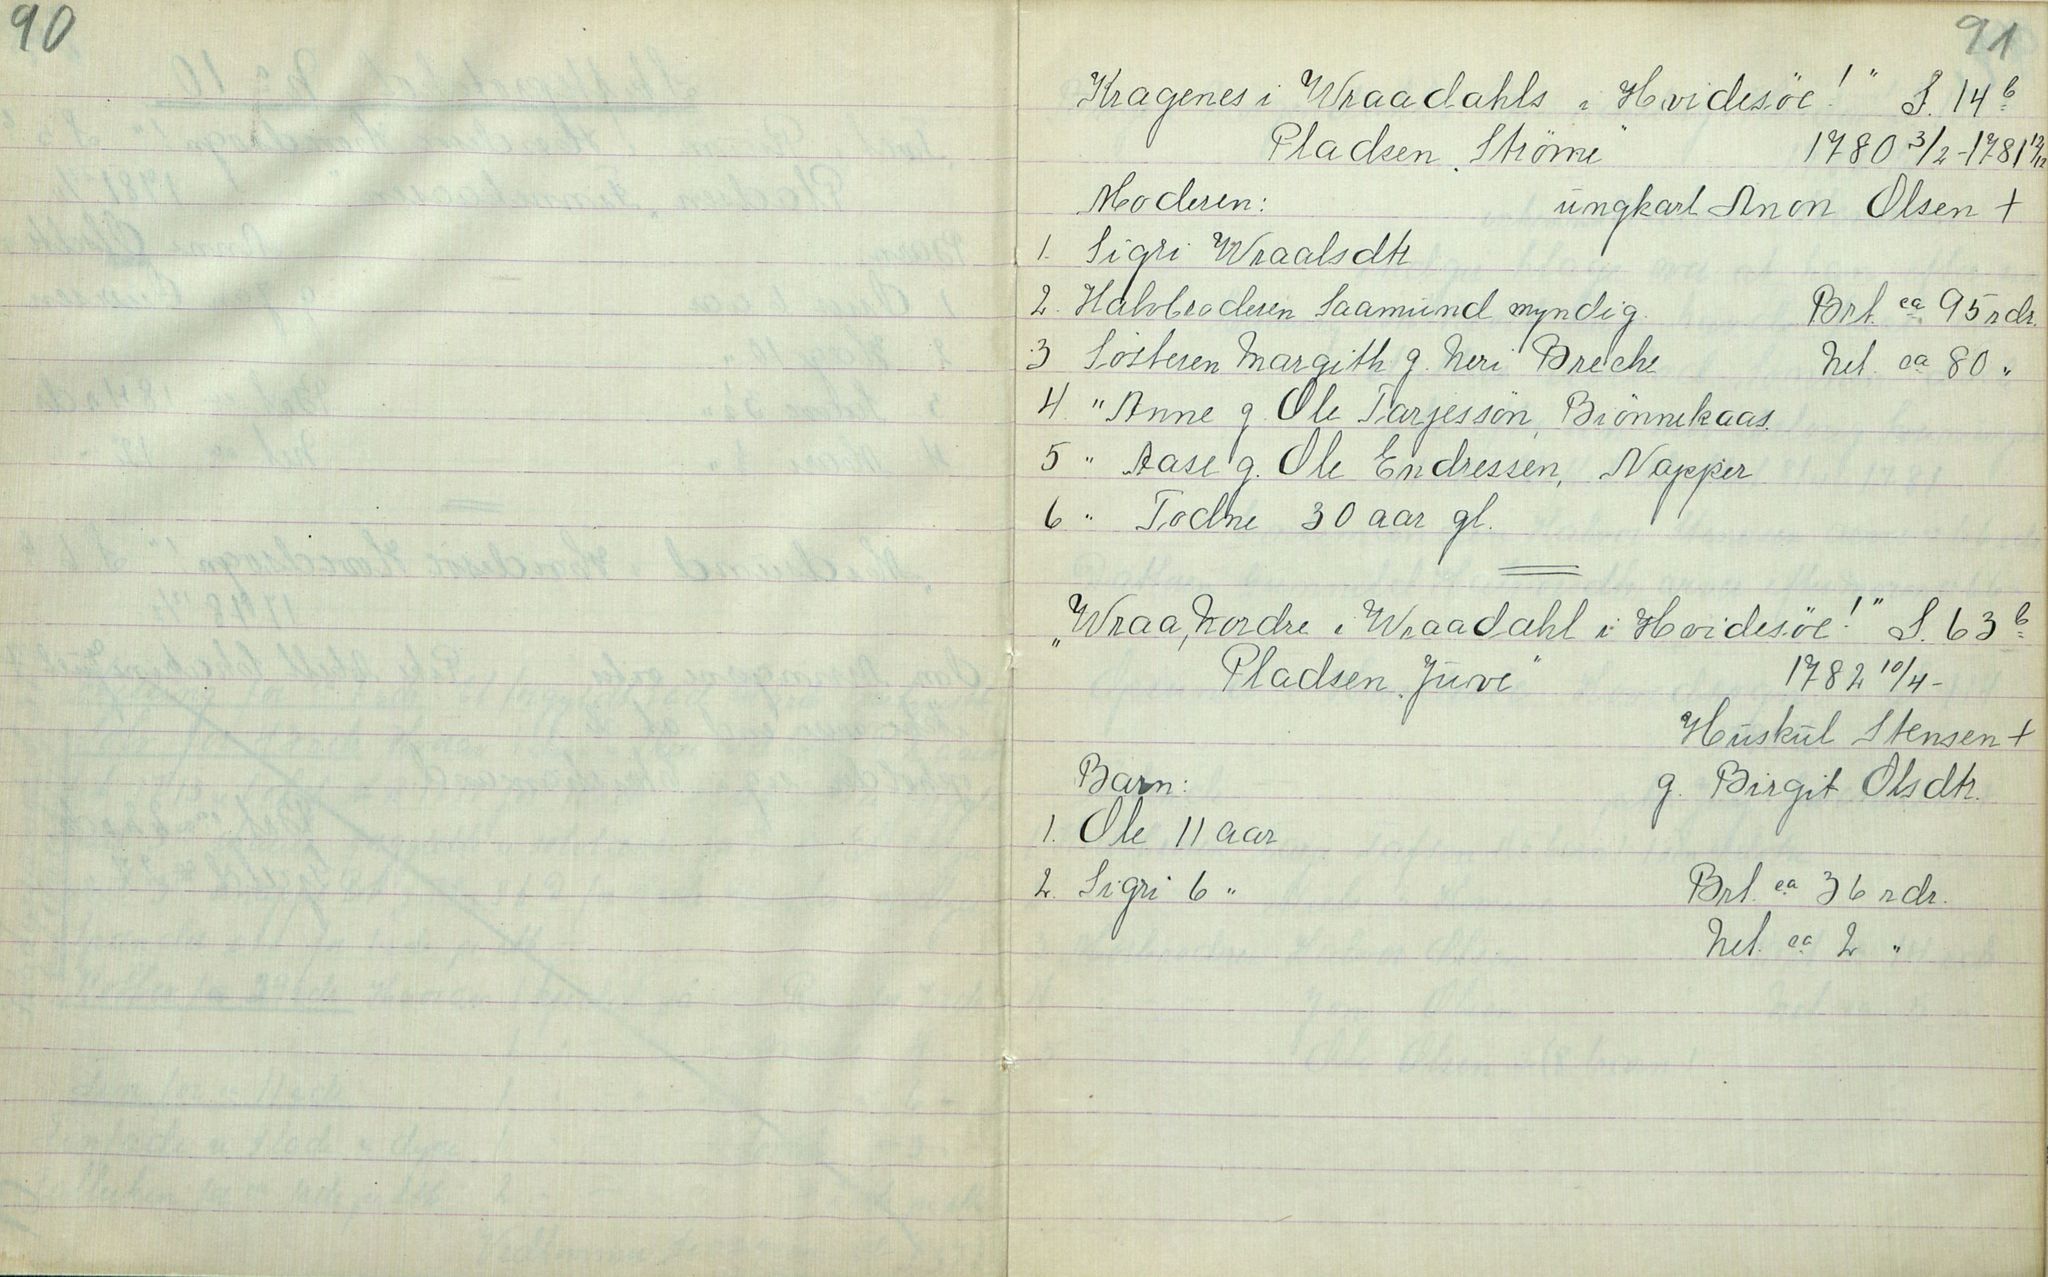 90
91
Kragenes i Wraadahls i Hvidesöe!" S. 14 b
Pladsen "Strömé" 1780 3/2 - 1781 12/12
Moderen: ungkarl Anon Olsen +
1. Sigri Wraalsdtr
2. Halvbroderen Saamund myndig. Brt. ca 95 rdr.
3 Søsteren Margith g. Neri Breche Net. ca 80 "
4. " Anne g. Ole Tarjessön, Biönnekaas.
5 " Aase g. Ole Endressen, Napper
6 " Todne 30 aar gl.
"Wraa, Nordre i Wraadahl i Hvidesöe!" S. 63 b
Pladsen "Juve" 1782 10/4 -
Huskul Stensen +
Barn: g. Birgit Olsdtr.
1. Ole 11 aar
2. Sigri 6 " Brt. ca 36 rdr.
Net. ca 2 "